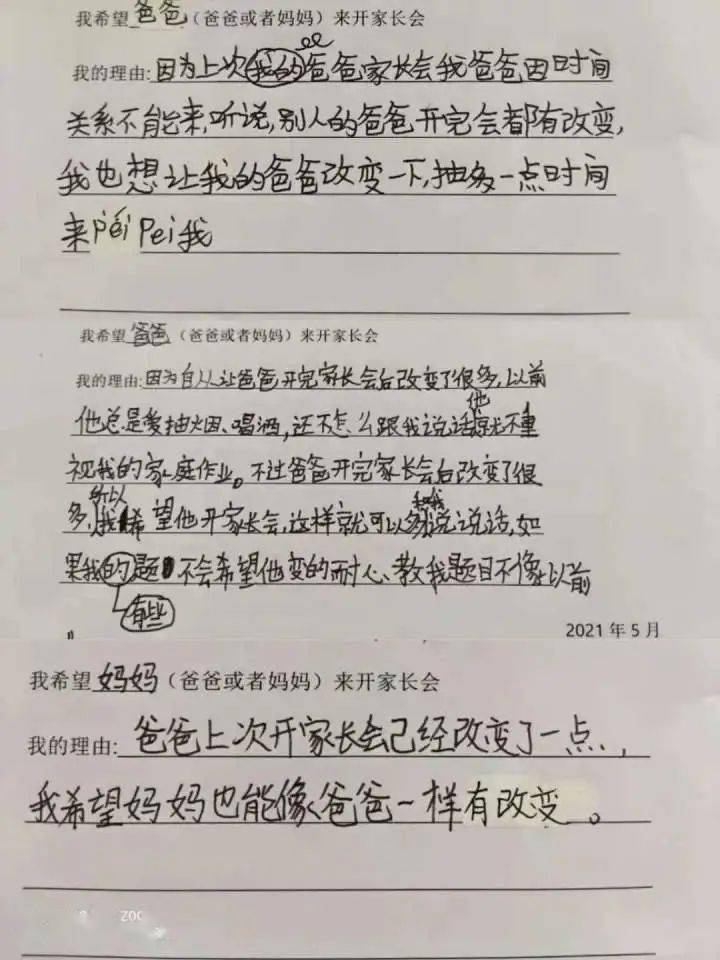 我希望爸爸（爸爸或者妈妈）来开家长会
我的理由:因为上次我的爸爸家长会我爸爸因时间
关系不能来,听说,别人的爸爸开完会都有改变,
我也想让我的爸爸改变一下,抽多一点时间
来péi Pei我
我希望爸爸（爸爸或者妈妈）来开家长会
我的理由:因为自从让爸爸开完家长会后改变了很多,以前
他总是爱抽烟、喝酒,还不怎么跟我说话他就不重
视我的家庭作业。不过爸爸开完家长会后改变了很
多,所以我希望他开家长会,这样就可以多和我说说话,如
果我的有些题不会希望他变的耐心、教我题目不像以前
。
2021年5月
我希望妈妈（爸爸或者妈妈）来开家长会
我的理由:爸爸上次开家长会已经改变了一点,
我希望妈妈也能像爸爸一样有改变。